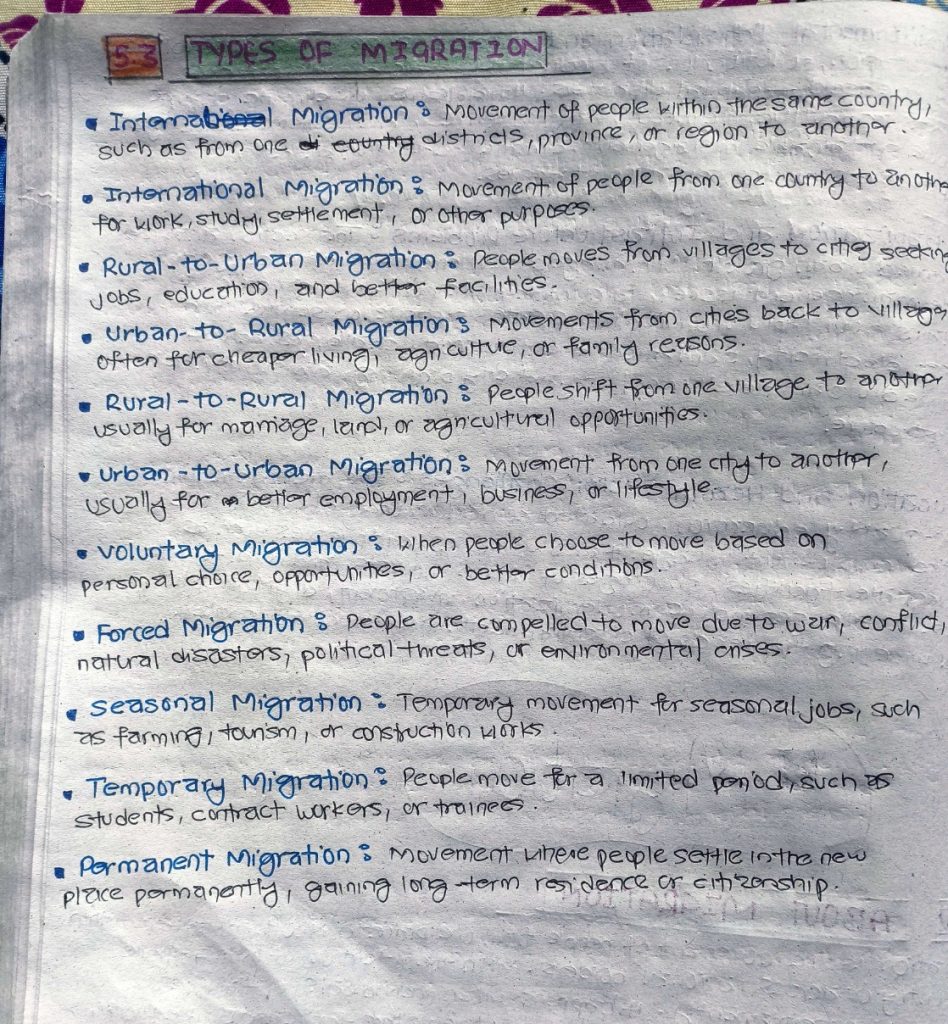 5.3 TYPES OF MIGRATION
• Internal Migration : Movement of people within the same country,
such as from one districts, province, or region to another.
• International Migration : Movement of people from one country to anothe
for work, study, settlement, or other purposes.
• Rural-to-Urban Migration : People moves from villages to cities seekin
jobs, education, and better facilities.
• Urban-to-Rural Migration : Movements from cities back to villages
often for cheaper living, agriculture, or family reasons.
• Rural-to-Rural Migration : People shift from one village to another
usually for marriage, land, or agricultural opportunities.
• Urban-to-Urban Migration : Movement from one city to another,
usually for better employment, business, or lifestyle.
• Voluntary Migration : When people choose to move based on
personal choice, opportunities, or better conditions.
• Forced Migration : People are compelled to move due to war, conflict,
natural disasters, political threats, or environmental crises.
• Seasonal Migration : Temporary movement for seasonal jobs, such
as farming, tourism, or construction works.
• Temporary Migration : People move for a limited period, such as
students, contract workers, or trainees.
• Permanent Migration : Movement where people settle in the new
place permanently, gaining long-term residence or citizenship.